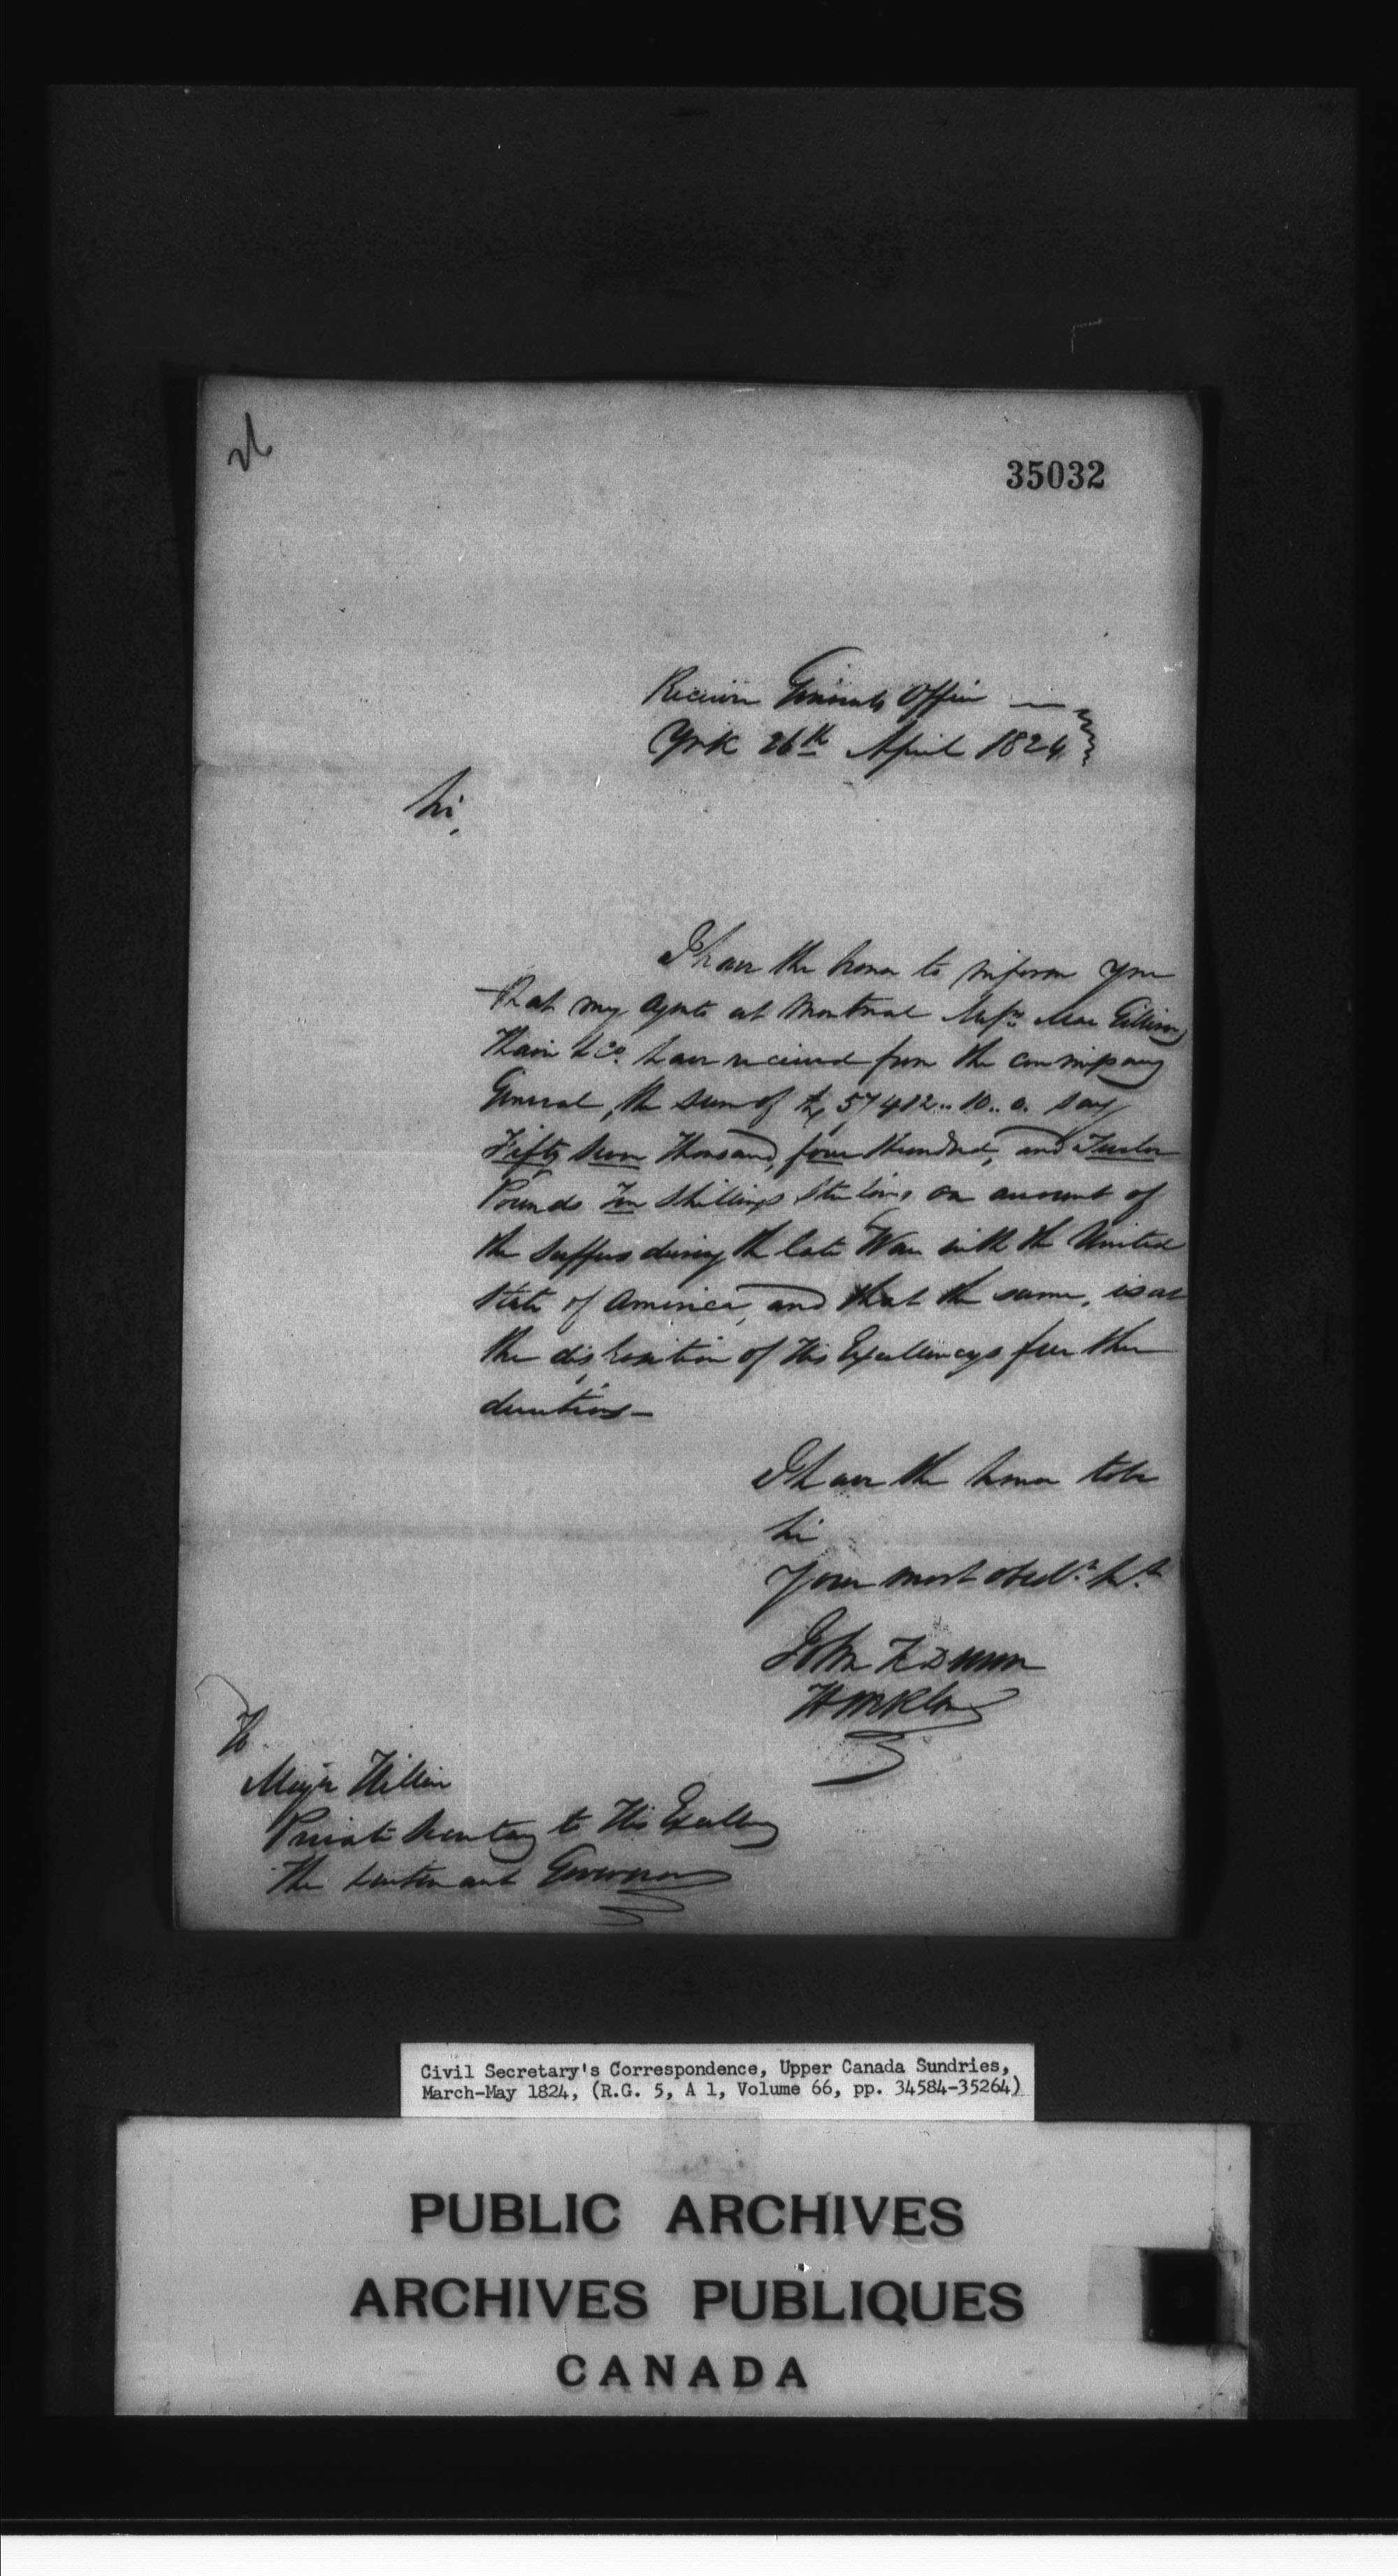 35032
Receiver Generals Office
York 26th April 1824
Sir,
I have the honor to inform you
that my Agents at Montreal Messrs Mac Gillivray
Thain & Co. have received from the Commissary
General, the sum of £57412..10..0. Say
Fifty Seven Thousand, four Hundred, and Twelve
Pounds Ten Shillings Sterling on account of
the Suffers during the late War with the United
State of America, and that the same, is at
the disposition of His Excellencys further
directions—
I have the honor to be
Sir
Your most obedt. St.
John H Dunn
H M R Genl
To
Major Hillier
Private Secretary to His Excellency
The Lieutenant Governor
Civil Secretary's Correspondence, Upper Canada Sundries,
March-May 1824, (R.G. 5, A 1, Volume 66, pp. 34584-35264)
PUBLIC ARCHIVES
ARCHIVES PUBLIQUES
CANADA